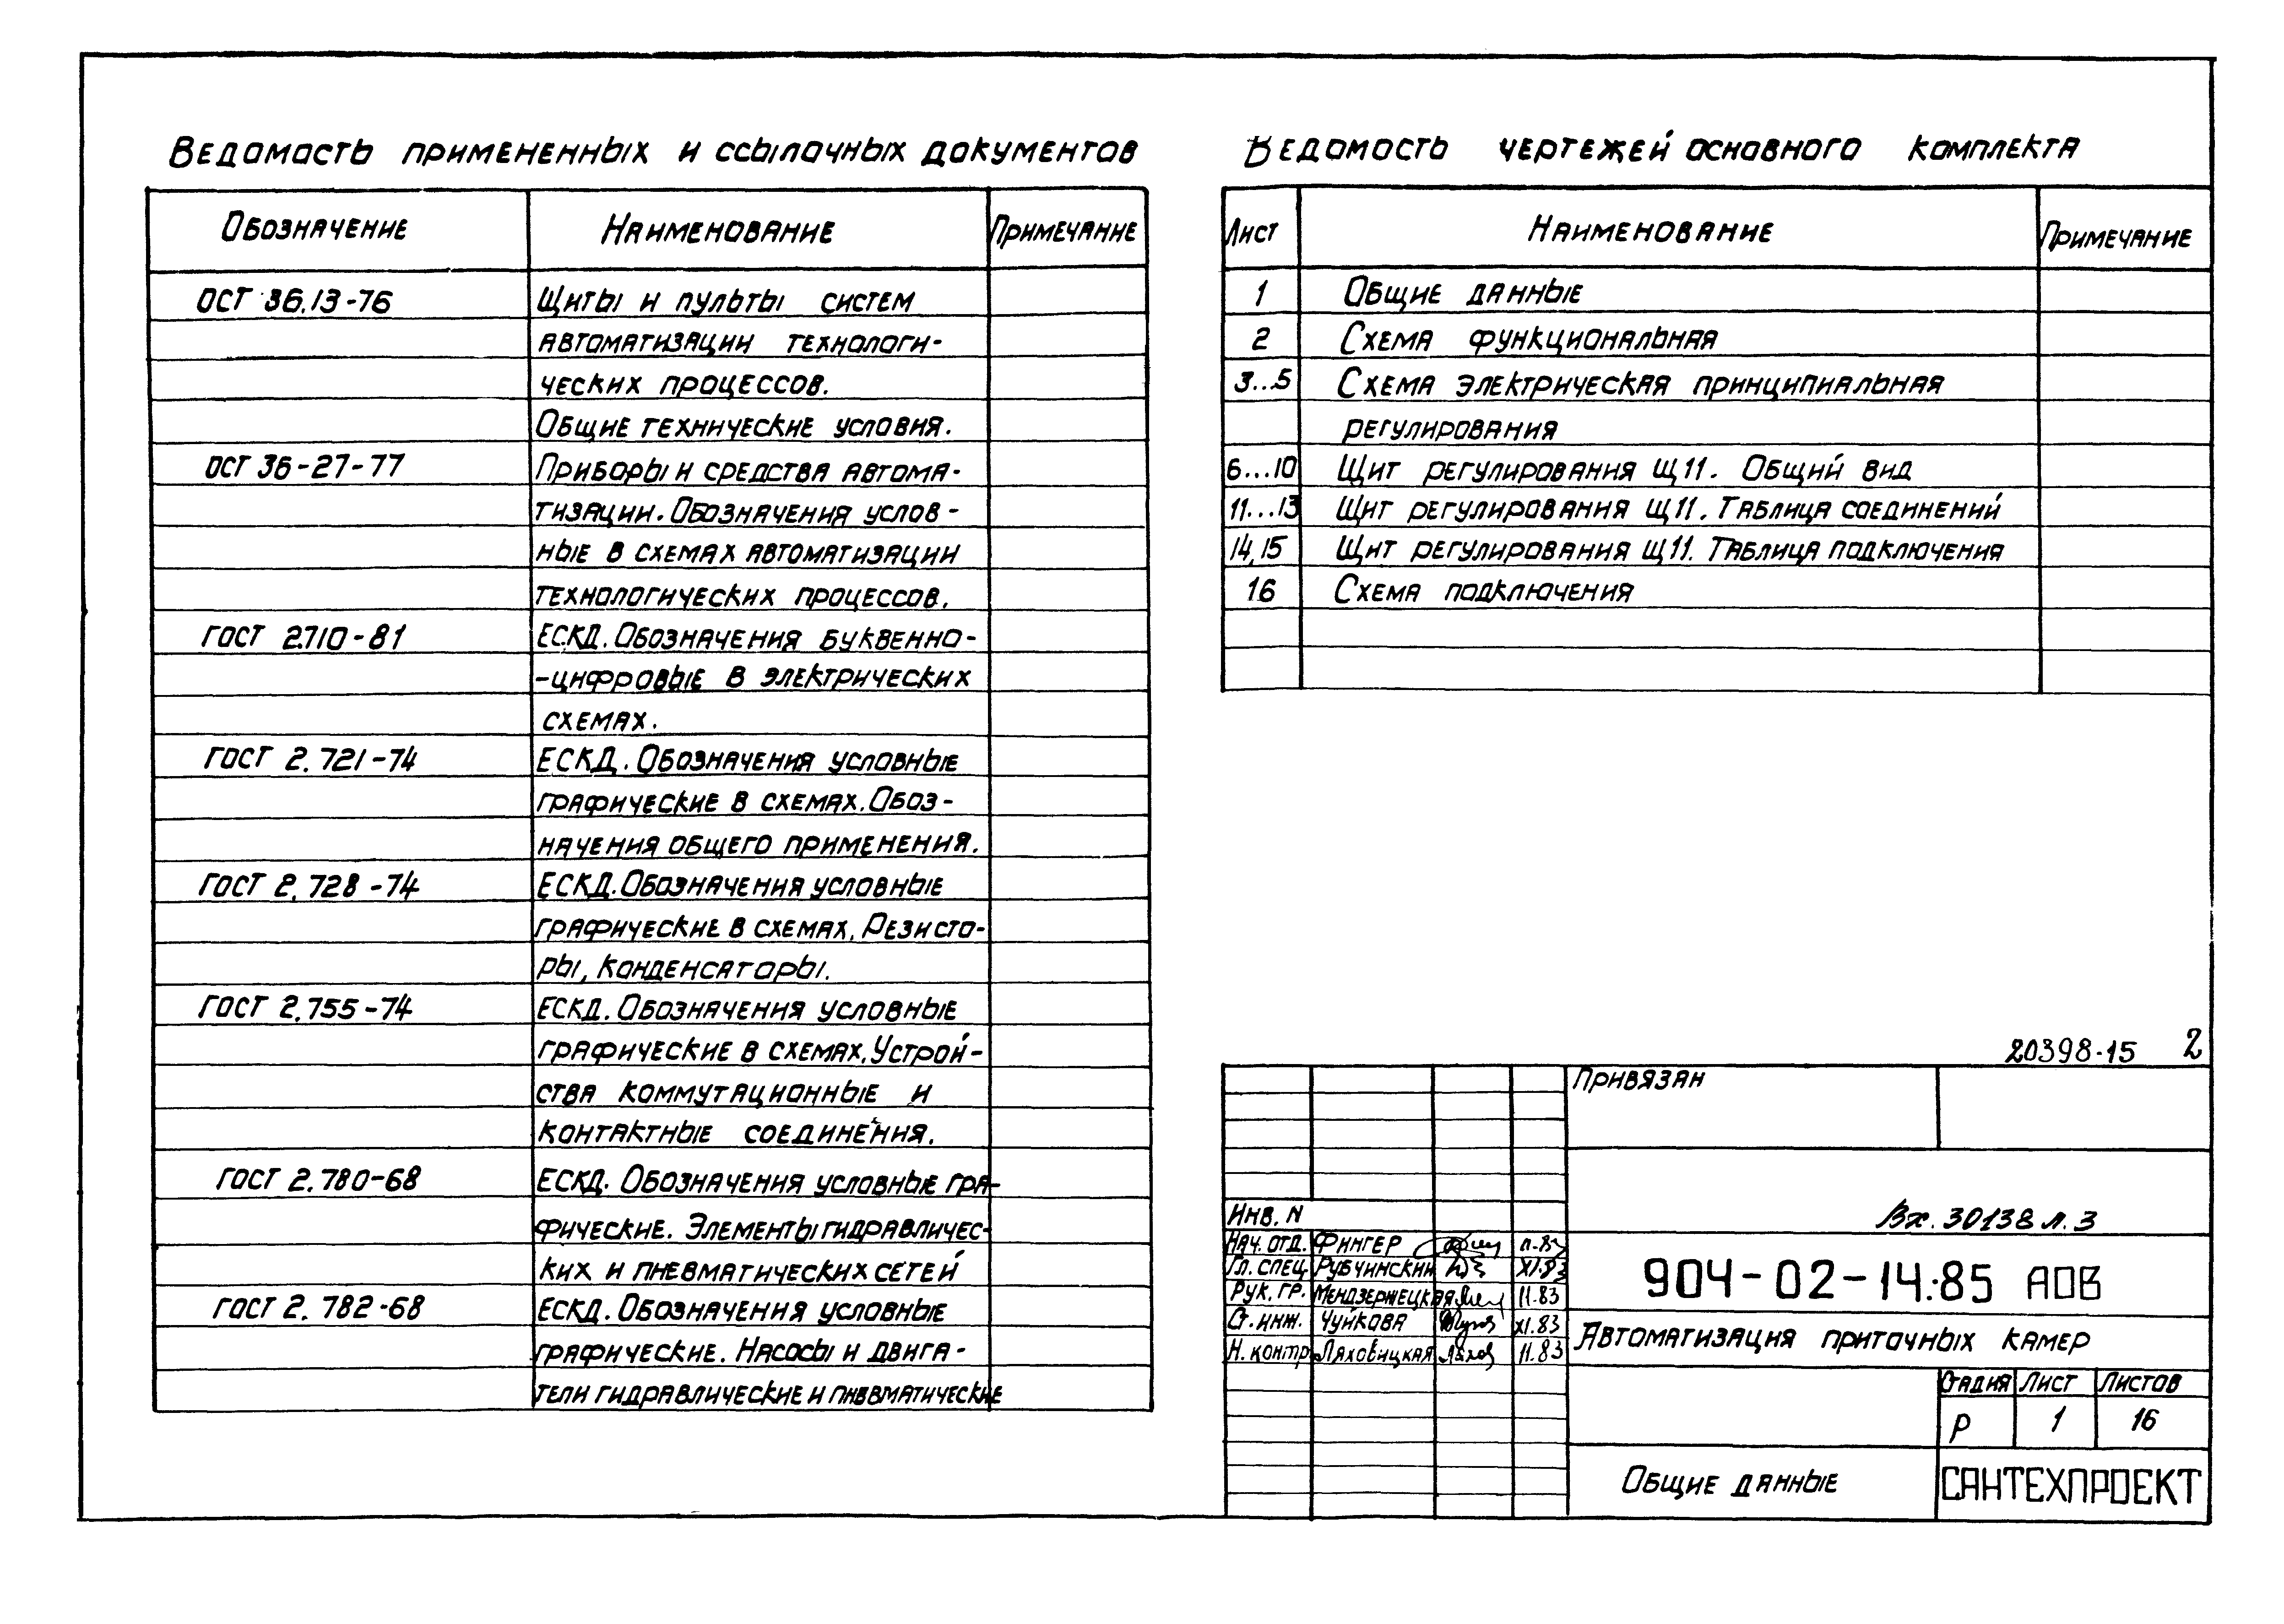 Ведомость примененных и ссылочных документов
Обозначение Наименование Примечание
ОСТ 36.13-76 Щиты и пульты систем
автоматизации технологи-
ческих процессов.
Общие технические условия.
ОСТ 36-27-77 Приборы и средства автома-
тизации. Обозначения услов-
ные в схемах автоматизации
технологических процессов.
ГОСТ 2.710-81 ЕСКД. Обозначения буквенно-
-цифровые в электрических
схемах.
ГОСТ 2.721-74 ЕСКД. Обозначения условные
графические в схемах. Обоз-
начения общего применения.
ГОСТ 2.728-74 ЕСКД. Обозначения условные
графические в схемах. Резисто-
ры, конденсаторы.
ГОСТ 2.755-74 ЕСКД. Обозначения условные
графические в схемах. Устрой-
ства коммутационные и
контактные соединения.
ГОСТ 2.780-68 ЕСКД. Обозначения условные гра-
фические. Элементы гидравличес-
ких и пневматических сетей
ГОСТ 2.782-68 ЕСКД. Обозначения условные
графические. Насосы и двига-
тели гидравлические и пневматические
Ведомость чертежей основного комплекта
Лист Наименование Примечание
1 Общие данные
2 Схема функциональная
3...5 Схема электрическая принципиальная
регулирования
6...10 Щит регулирования Щ11. Общий вид
11...13 Щит регулирования Щ11. Таблица соединений
14,15 Щит регулирования Щ11. Таблица подключения
16 Схема подключения
20398-15 2
Привязан
Инв. N
Вх. 30138 л. 3
Нач. отд. Фингер 11-83
Гл. спец Рубчинский XI.83
Рук. гр. Мендзержецкая 11.83
Ст. инж. Чуйкова XI.83
Н. контр Ляховицкая 11.83
904-02-14.85 АОВ
Автоматизация приточных камер
Стадия Лист Листов
Р 1 16
Общие данные
САНТЕХПРОЕКТ